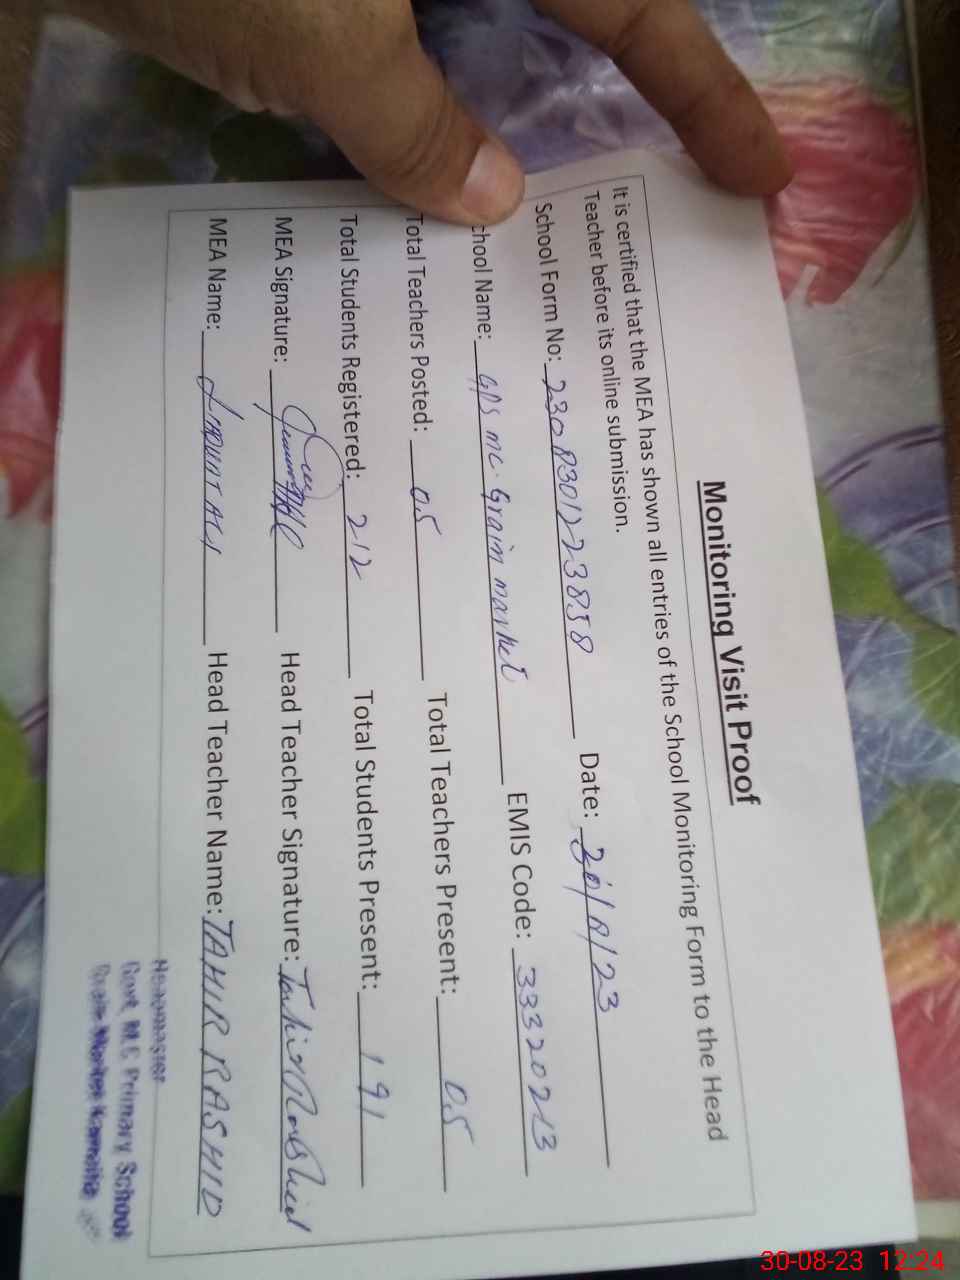 Monitoring Visit Proof
It is certified that the MEA has shown all entries of the School Monitoring Form to the Head
Teacher before its online submission.
School Form No: Date: 30/8/23
chool Name: GPS mc. Grain market EMIS Code: 33320213
Total Teachers Posted: 05 Total Teachers Present: 05
Total Students Registered: 212 Total Students Present: 191
MEA Signature: Head Teacher Signature: Tahir Rashid
MEA Name: Head Teacher Name: TAHIR RASHID
Headmaster
Govt. M.C Primary School
Grain Market
30-08-23 12:24